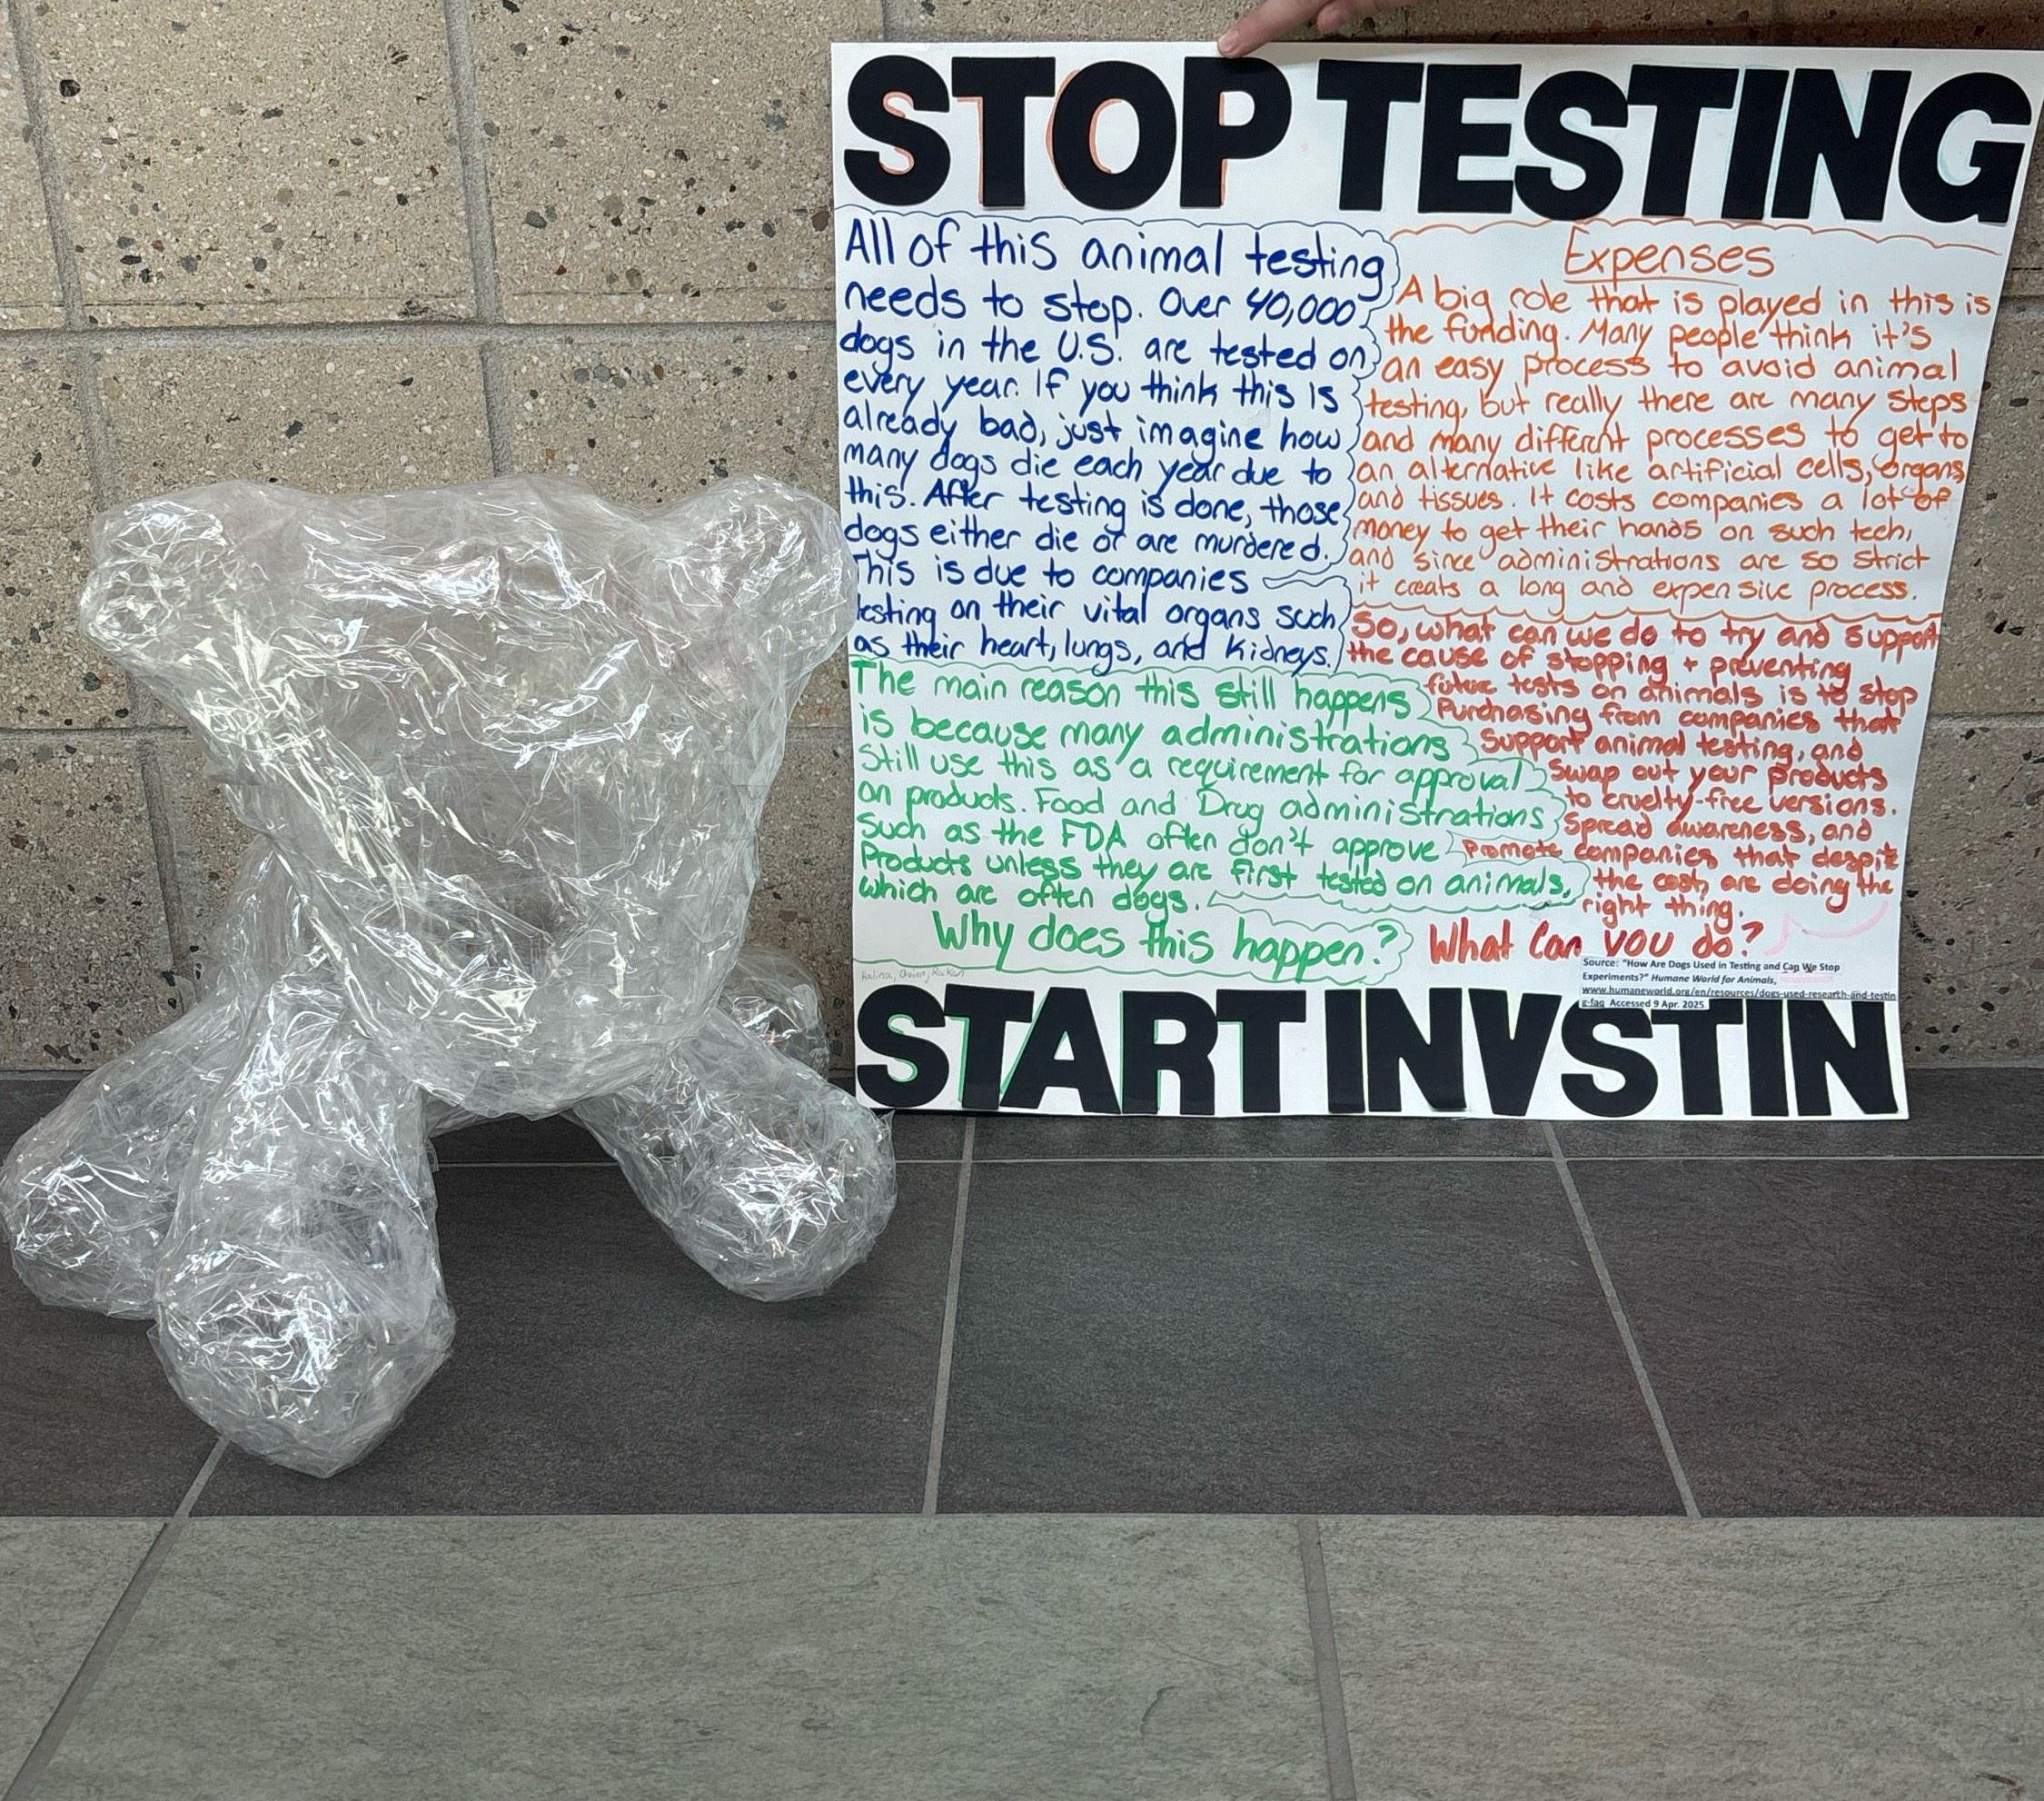 STOP TESTING
All of this animal testing
needs to stop. Over 40,000
dogs in the U.S. are tested on
every year. If you think this is
already bad, just imagine how
many dogs die each year due to
this. After testing is done, those
dogs either die or are murdered.
This is due to companies
testing on their vital organs such
as their heart, lungs, and kidneys.
Expenses
A big role that is played in this is
the funding. Many people think it's
an easy process to avoid animal
testing, but really there are many steps
and many different processes to get to
an alternative like artificial cells, organs
and tissues. It costs companies a lot of
money to get their hands on such tech,
and since administrations are so strict
it creats a long and expensive process.
The main reason this still happens
is because many administrations
still use this as a requirement for approval
on products. Food and Drug administrations
such as the FDA often don't approve
Products unless they are first tested on animals,
which are often dogs.
Why does this happen?
So, what can we do to try and support
the cause of stopping + preventing
future tests on animals is to stop
Purchasing from companies that
support animal testing, and
swap out your products
to cruelty-free versions.
Spread awareness, and
promote companies that despite
the cost, are doing the
right thing.
What can you do?
Source: "How Are Dogs Used in Testing and Can We Stop
Experiments?" Humane World for Animals,
www.humaneworld.org/en/resources/dogs-used-research-and-testin
g-faq Accessed 9 Apr. 2025
START INVSTIN